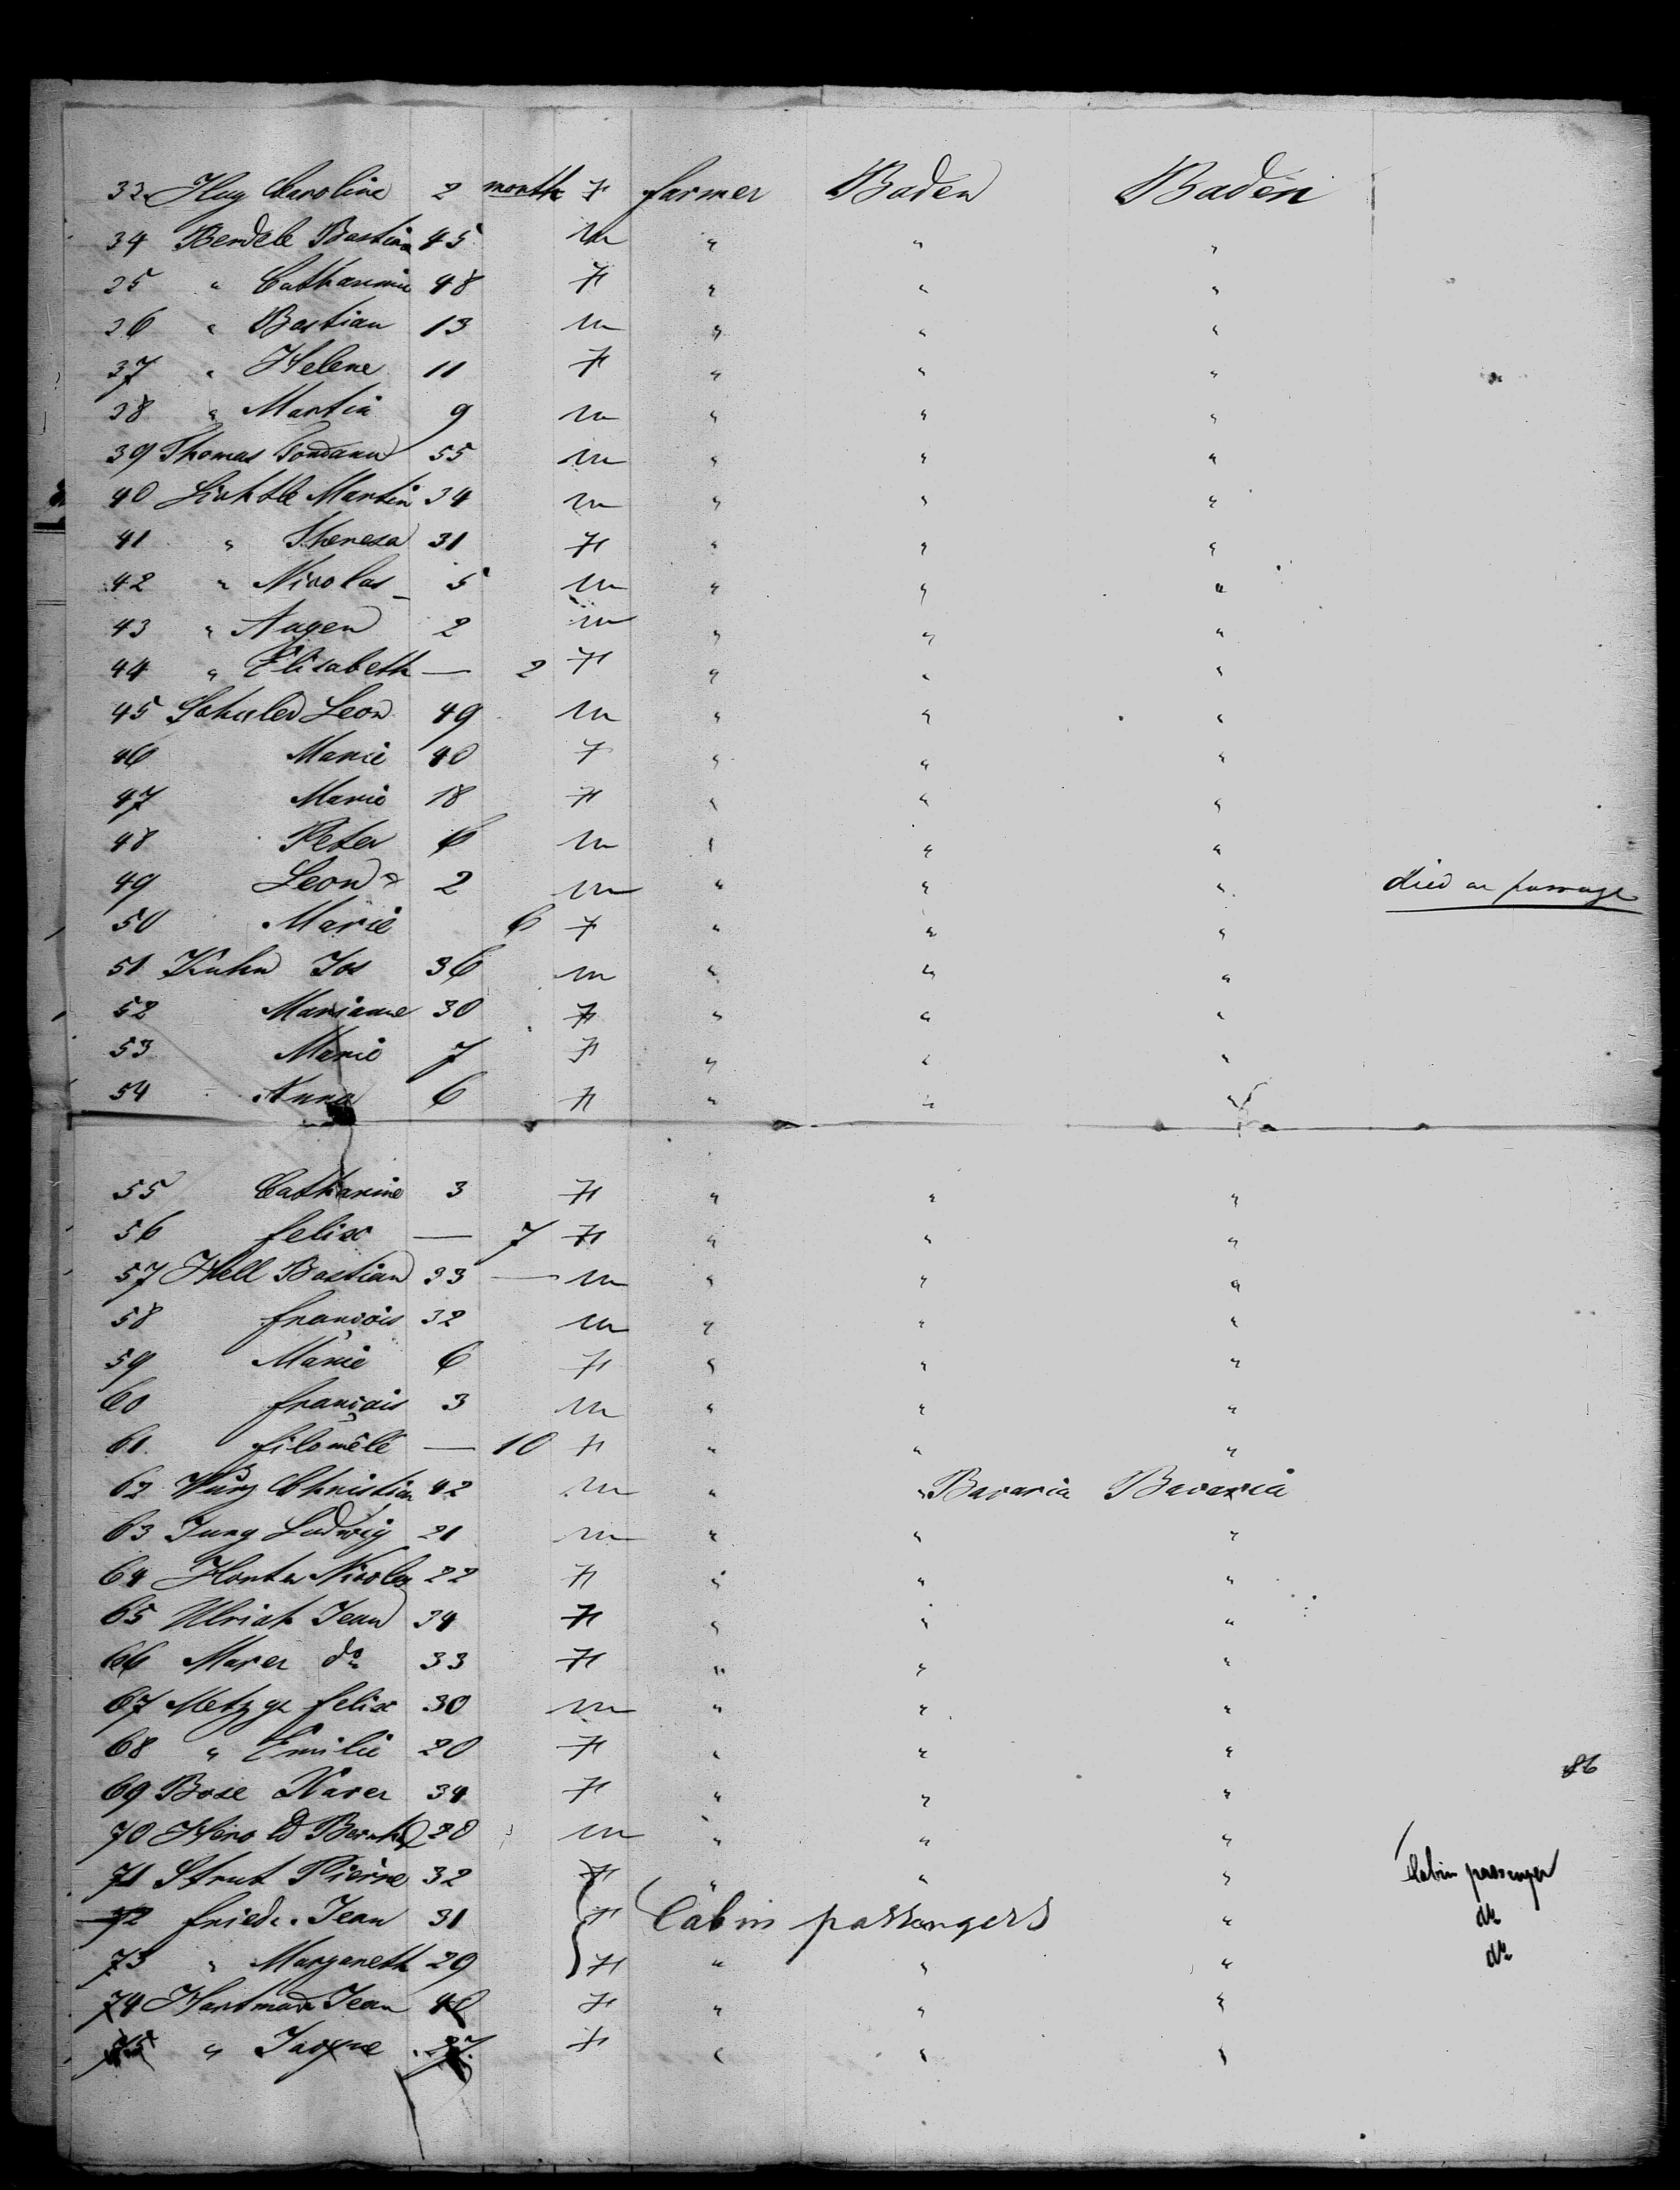 33 Hug Caroline 2 month F farmer Baden Baden
34 Bendele Bastian 45 m " " "
35 " Catharine 48 F " " "
36 " Bastian 13 m " " "
37 " Helene 11 F " " "
38 " Martin 9 m " " "
39 Thomas 55 m " " "
40 Martin 34 m " " "
41 " Theresa 31 F " " "
42 " Nicolas 5 m " " "
43 " Augen 2 m " " "
44 " Elisabeth — 2 F " " "
45 Schuler Leon 49 m " " "
46 Marie 40 F " " "
47 Marie 18 F " " "
48 Peter 6 m " " "
49 Leon 2 m " " " died on passage
50 Marie 6 F " " "
51 Kuhn Jos 36 m " " "
52 Mariane 30 F " " "
53 Marie 7 F " " "
54 Anna 6 F " " "
55 Catharine 3 F " " "
56 felix — 7 F " " "
57 Hell Bastian 33 — m " " "
58 françois 32 m " " "
59 Marie 6 F " " "
60 françois 3 m " " "
61 filomêle — 10 F " " "
62 Christian 42 m " " Bavaria Bavaria
63 Jung Ludwig 21 m " " "
64 Nicolas 22 F " " "
65 Ulrich Jean 34 F " " "
66 Mayer do 33 F " " "
67 Metzge felix 30 m " " "
68 " Emilie 20 F " " "
86
69 Bose Xaver 34 F " " "
70 Herold 28 m " " "
71 Strut Pierre 32 F " " " Cabin passenger
72 fried. Jean 31 F Cabin passengers " do
73 " Margareth 29 F " " " do
74 Hartman Jean 40 F " " "
75 " 27 F " " "